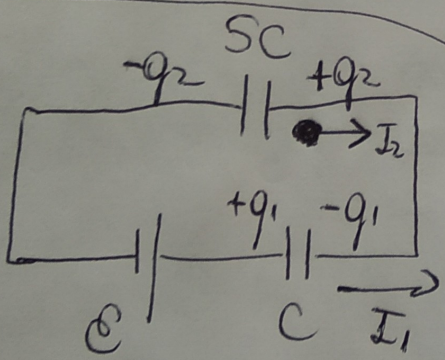 5C
-q2 +q2
I2
+q1 -q1
ℰ C I1